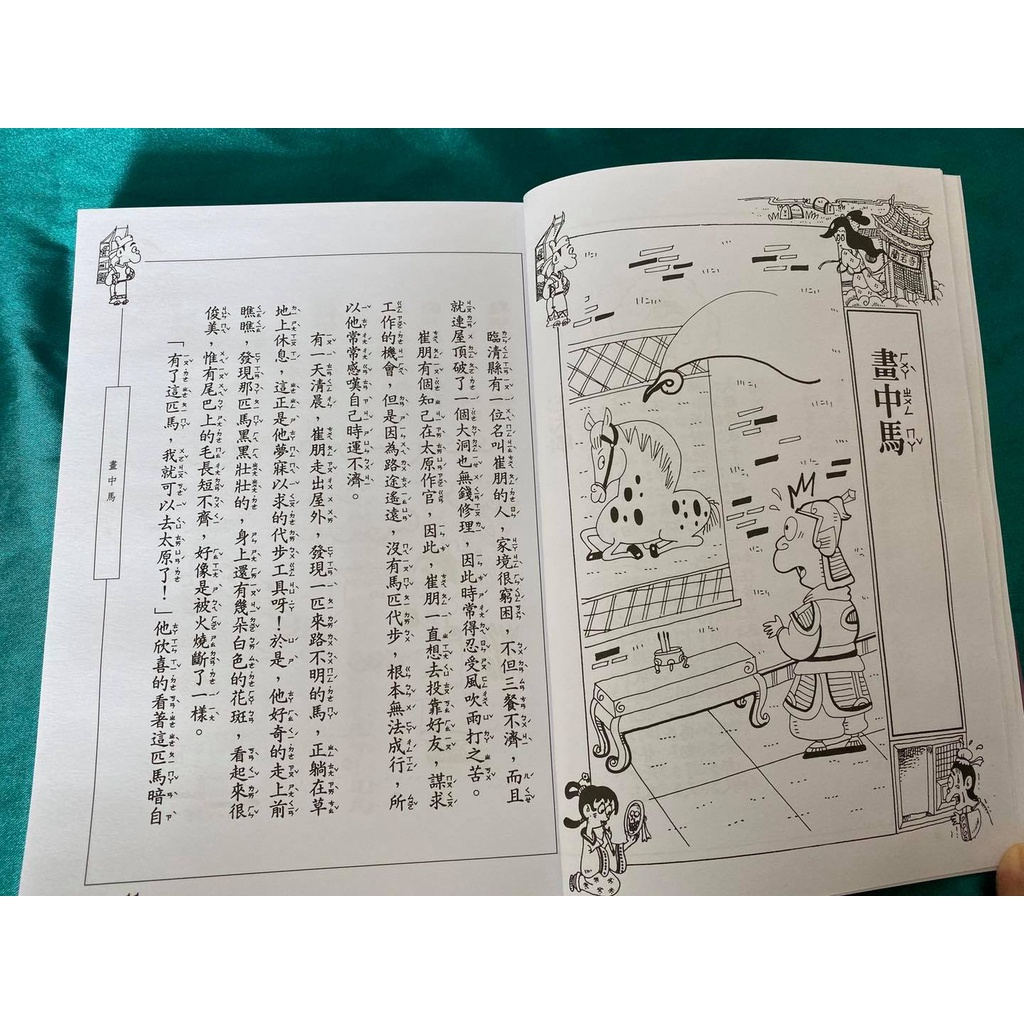 畫中馬
臨清縣有一位名叫崔朋的人，家境很窮困，不但三餐不濟，而且
就連屋頂破了一個大洞也無錢修理，因此時常得忍受風吹雨打之苦。
崔朋有個知己在太原作官，因此，崔朋一直想去投靠好友，謀求
工作的機會，但是因為路途遙遠，沒有馬匹代步，根本無法成行，所
以他常常感嘆自己時運不濟。
有一天清晨，崔朋走出屋外，發現一匹來路不明的馬，正躺在草
地上休息，這正是他夢寐以求的代步工具呀！於是，他好奇的走上前
瞧瞧，發現那匹馬黑黑壯壯的，身上還有幾朵白色的花斑，看起來很
俊美，惟有尾巴上的毛長短不齊，好像是被火燒斷了一樣。
「有了這匹馬，我就可以去太原了！」他欣喜的看著這匹馬暗自
畫中馬